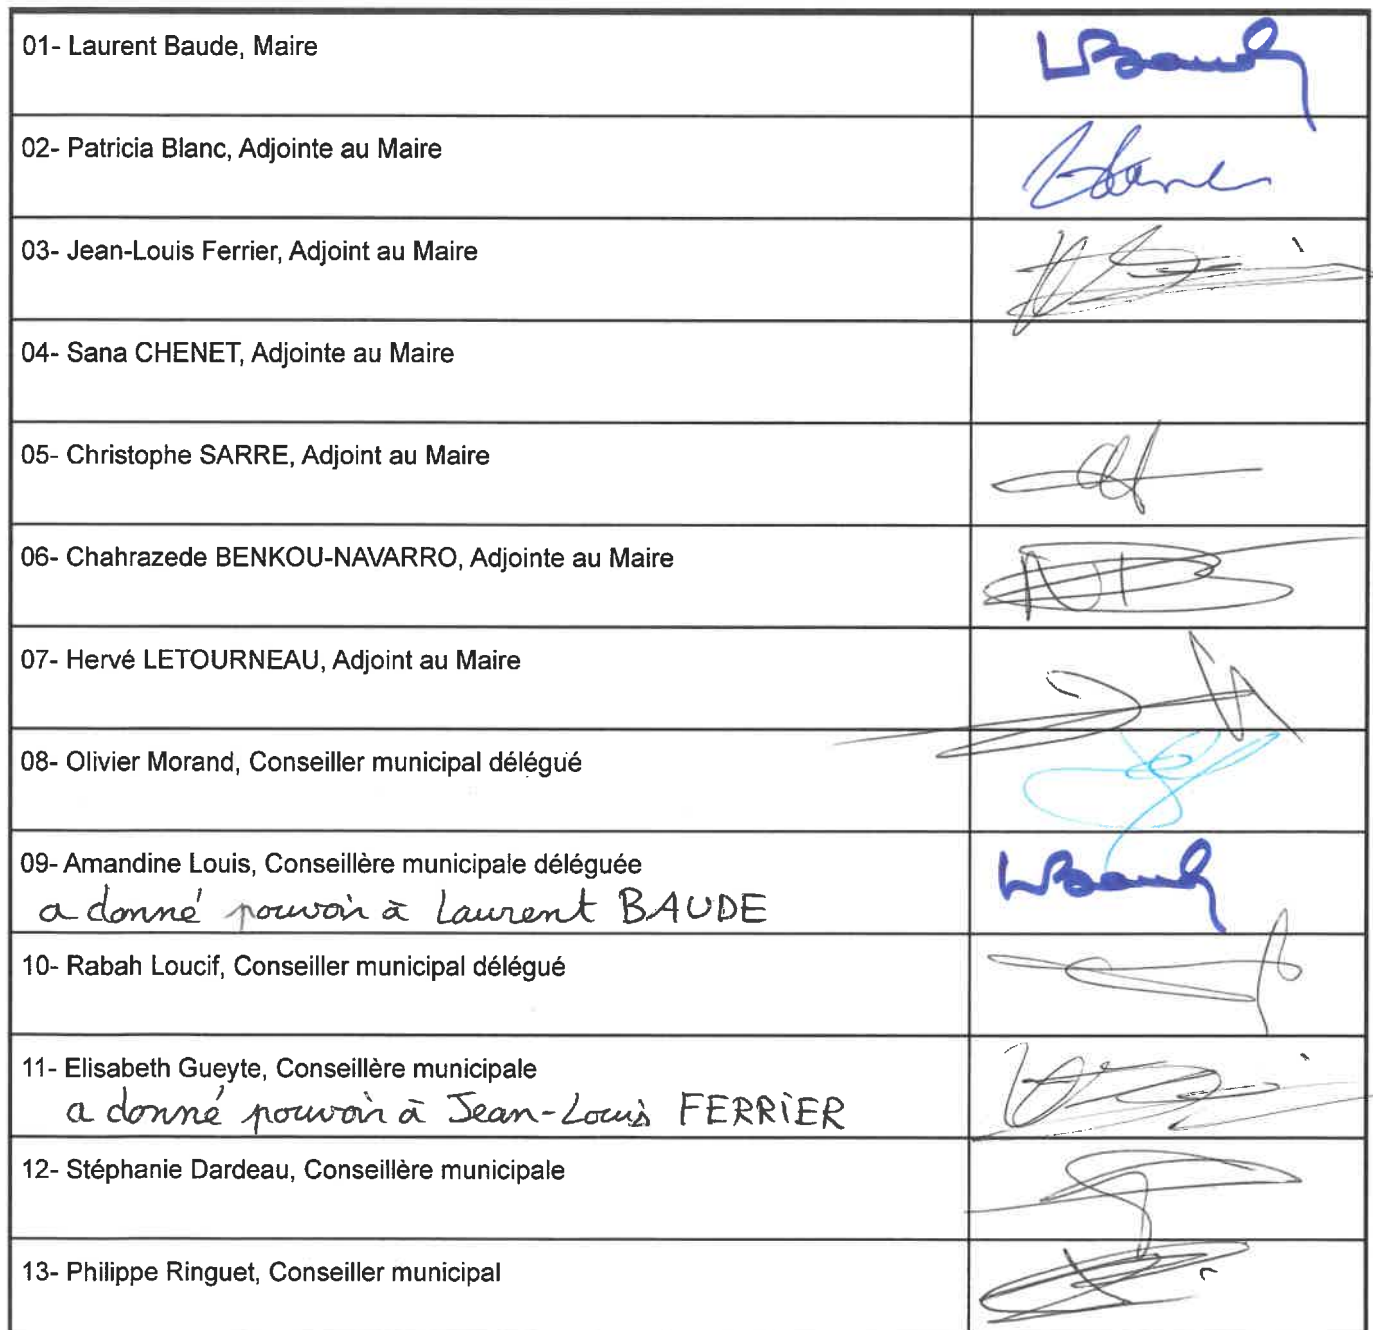 01- Laurent Baude, Maire
LBaude
02- Patricia Blanc, Adjointe au Maire
Blanc
03- Jean-Louis Ferrier, Adjoint au Maire
04- Sana CHENET, Adjointe au Maire
05- Christophe SARRE, Adjoint au Maire
06- Chahrazede BENKOU-NAVARRO, Adjointe au Maire
NB
07- Hervé LETOURNEAU, Adjoint au Maire
08- Olivier Morand, Conseiller municipal délégué
09- Amandine Louis, Conseillère municipale déléguée
a donné pouvoir à Laurent BAUDE
LBaude
10- Rabah Loucif, Conseiller municipal délégué
11- Elisabeth Gueyte, Conseillère municipale
a donné pouvoir à Jean-Louis FERRIER
12- Stéphanie Dardeau, Conseillère municipale
13- Philippe Ringuet, Conseiller municipal